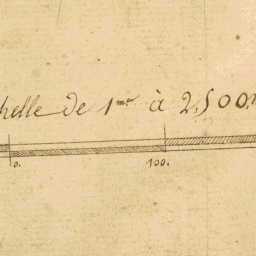 helle de 1me à 2,500m
0. 100.